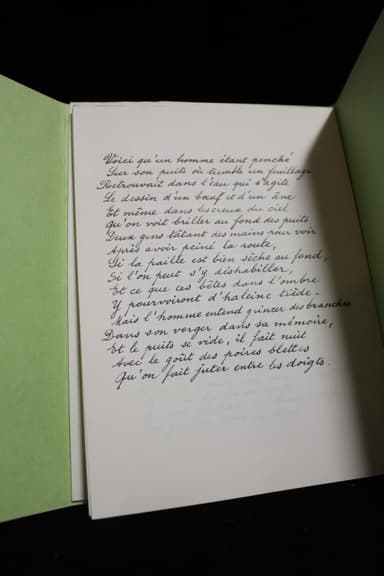 Voici qu'un homme étant penché
Sur son puits où tremble un feuillage
Retrouvait dans l'eau qui s'agite
Le dessin d'un bœuf et d'un âne
Et même dans les creux du ciel
Qu'on voit briller au fond des puits
Deux gens tâtant des mains pour voir
Après avoir peiné la route,
Si la paille est bien sèche au fond,
Si l'on peut s'y déshabiller,
Et ce que ces bêtes dans l'ombre
Y pourvoiront d'haleine tiède -
Mais l'homme entend grincer des branches
Dans son verger dans sa mémoire,
Et le puits se vide, il fait nuit
Avec le goût des poires blettes
Qu'on fait juter entre les doigts.